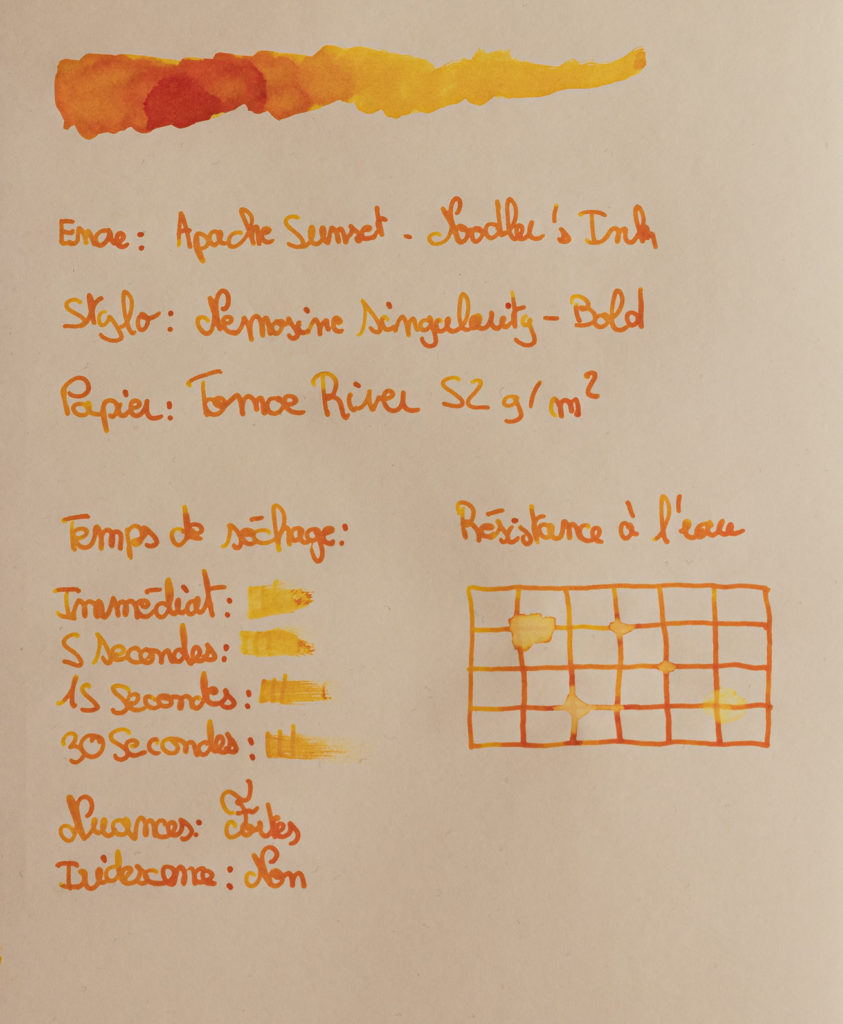 Encre : Apache Sunset - Noodler's Ink
Stylo : Nemosine Singularity - Bold
Papier : Tomoe River 52 g/m²
Temps de séchage :
Résistance à l'eau
Immédiat :
5 secondes :
15 secondes :
30 Secondes :
Nuances : Fortes
Iridescence : Non